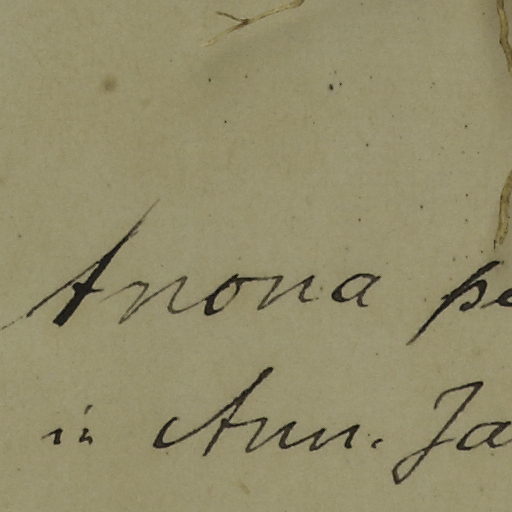 Anona pe
in Ann. Ja